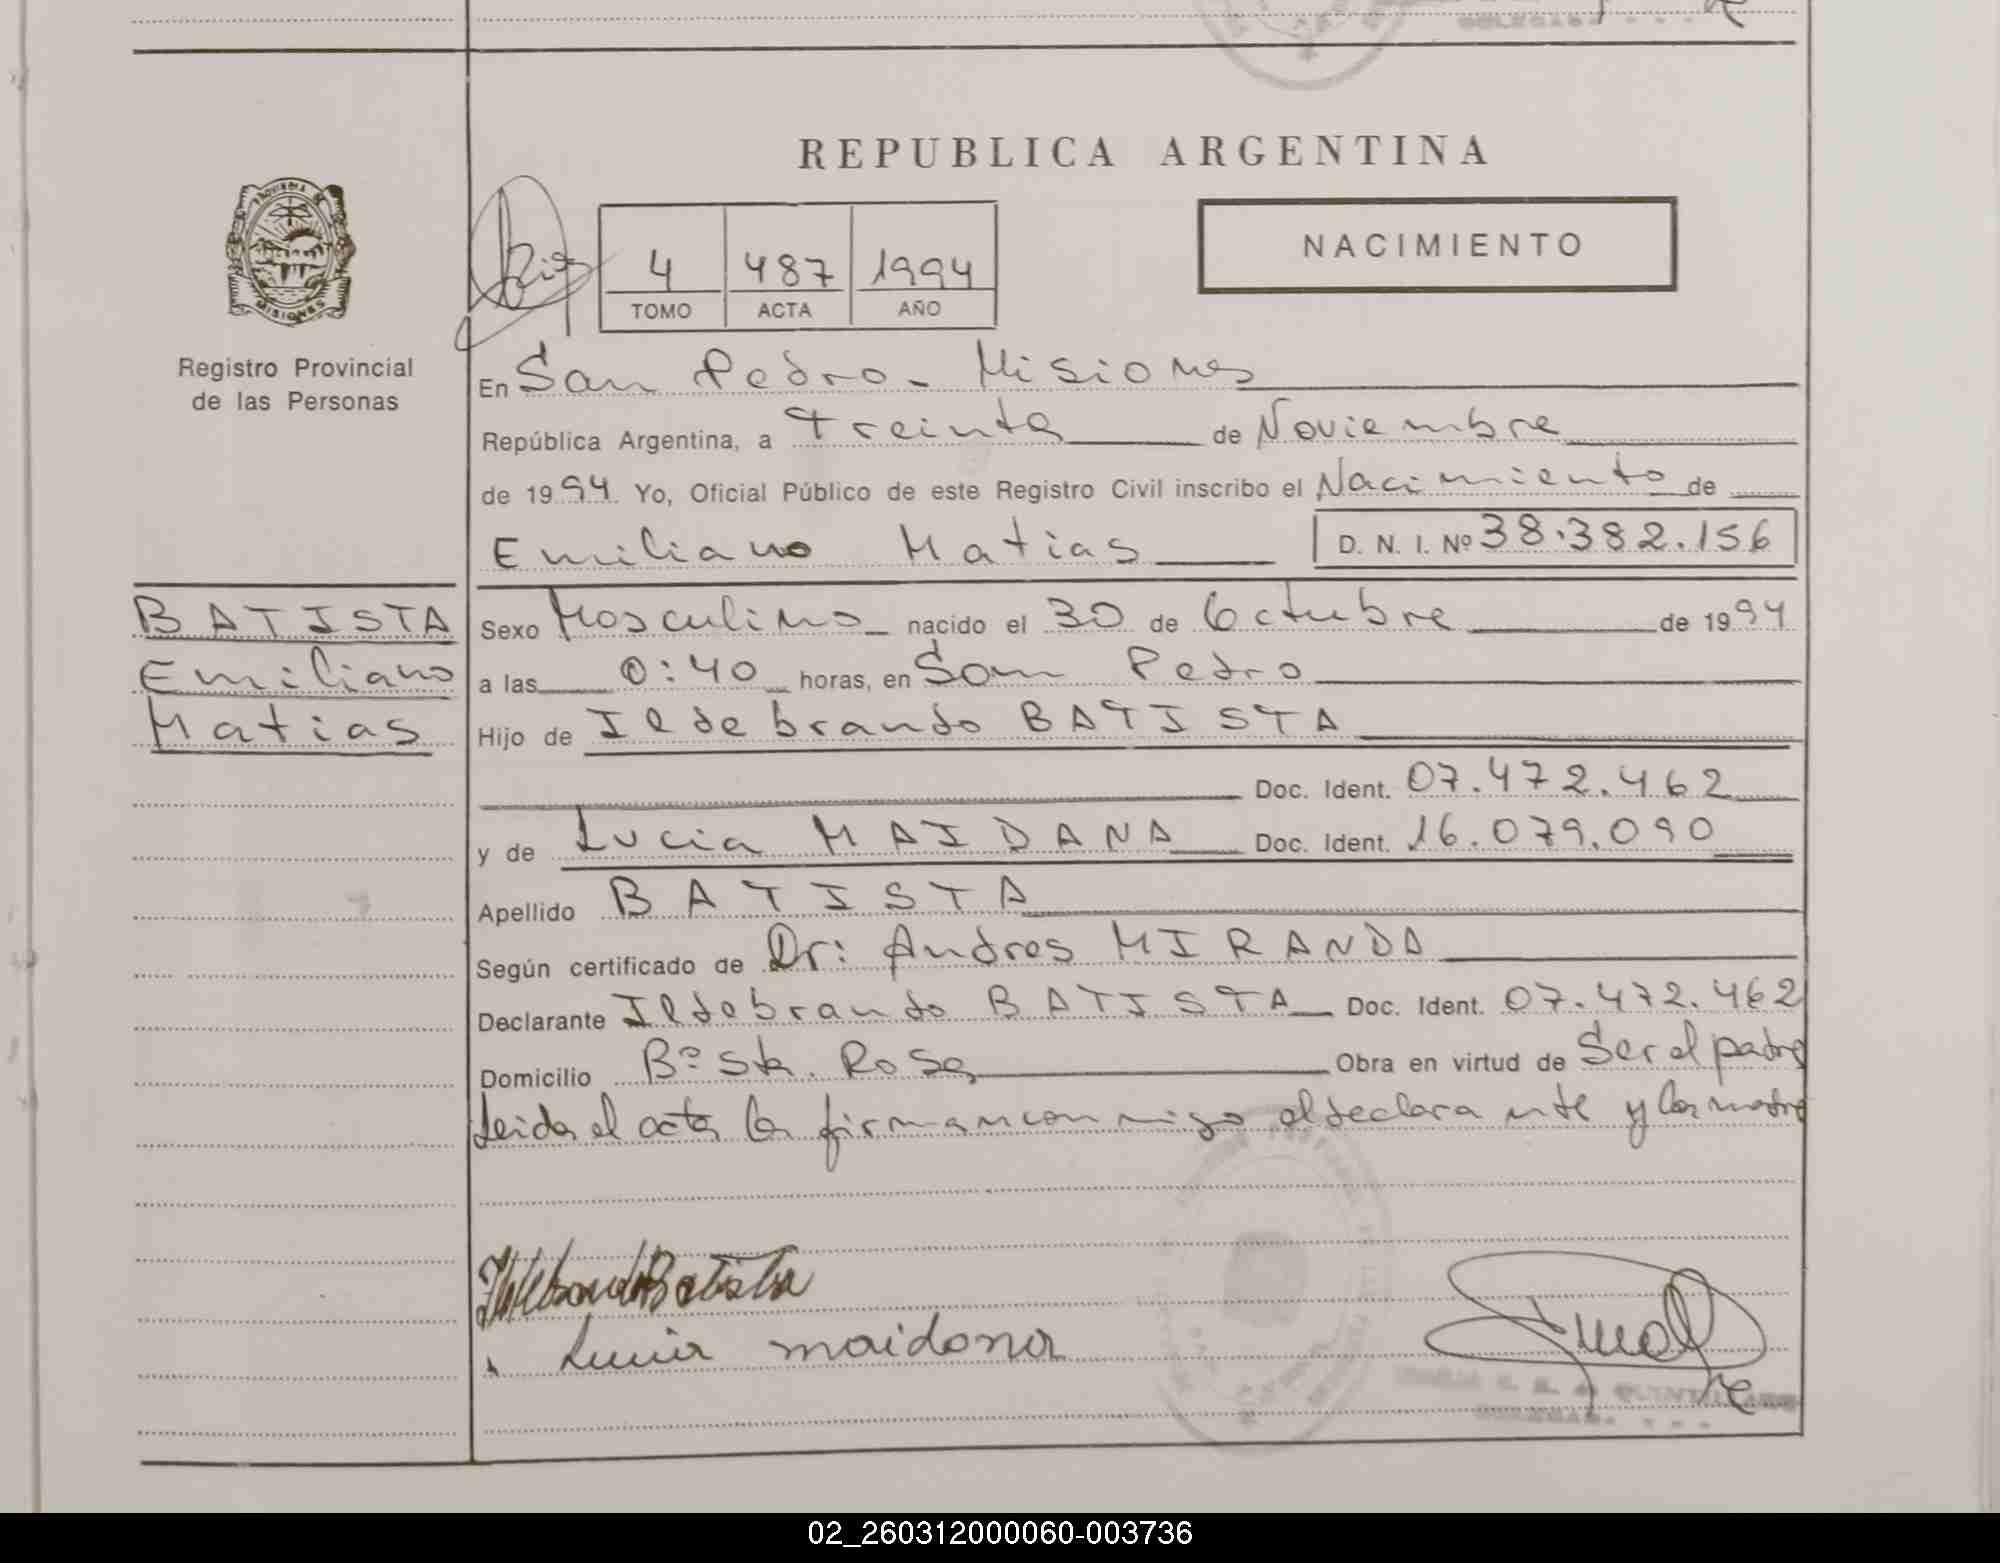 REPUBLICA ARGENTINA
PROVINCIA DE
MISIONES
Registro Provincial
de las Personas
4 487 1994
TOMO ACTA AÑO
NACIMIENTO
En San Pedro - Misiones
República Argentina, a Treinta de Noviembre
de 1994 Yo, Oficial Público de este Registro Civil inscribo el Nacimiento de
Emiliano Matias D. N. I. Nº 38.382.156
BATISTA
Emiliano
Matias
Sexo Masculino nacido el 30 de Octubre de 1994
a las 0:40 horas, en San Pedro
Hijo de Ildebrando BATISTA
Doc. Ident. 07.472.462
y de Lucia MAIDANA Doc. Ident. 16.079.090
Apellido BATISTA
Según certificado de Dr: Andres MIRANDA
Declarante Ildebrando BATISTA Doc. Ident. 07.472.462
Domicilio Bº Sta. Rosa Obra en virtud de Ser el padre
Leida el acta la firman conmigo el declarante y la madre
Ildebrando Batista
Lucia maidana
02_260312000060-003736